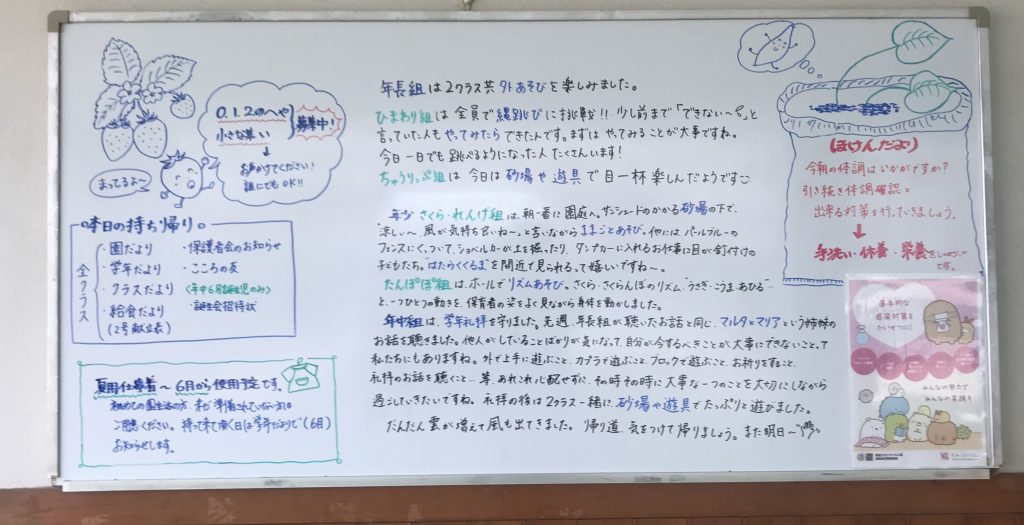 0.1.2のへや
小さな集い
募集中!
お声かけてください!
誰にでもOK!!
まってるよ〜
本日の持ち帰り
全クラス
・園だより
・学年だより
・クラスだより
・給食だより
(2号献立表)
・保護者会のお知らせ
・こころの友
<年中6月誕生児のみ>
・誕生会招待状
夏用仕事着〜6月から使用予定です。
初めての園生活の方、まだ準備されていない方は
ご用意ください。持って来て頂く日は学年だよりで(6月)
お知らせします。
年長組は2クラス共外あそびを楽しみました。
ひまわり組は全員で縄跳びに挑戦!!少し前まで「できない〜」と
言っていた人もやってみたらできたんです。まずはやってみることが大事ですね。
今日一日でも跳べるようになった人たくさんいます!
ちゅうりっぷ組は今日は砂場や遊具で目一杯楽しんだようです
年少さくら・れんげ組は、朝一番に園庭へ。サンシェードのかかる砂場の下で、
涼しい〜、風が気持ち良いね〜。と言いながらままごとあそび。他にはパールブルーの
フェンスにくっついて、ショベルカーが土を掘ったり、ダンプカーに入れるお仕事に目が釘付けの
子どもたち。"はたらくくるま"を間近で見られるって嬉しいですね〜。
たんぽぽ組は、ホールでリズムあそび。さくら・さくらんぼのリズム、"うさぎ・こうま・あひる"
と、一つひとつの動きを、保育者の姿をよく見ながら身体を動かしました。
年中組は、学年礼拝を守りました。先週、年長組が聴いたお話と同じ、マルタとマリアという姉妹の
お話を聴きました。他人がしていることばかりが気になって、自分が今するべきことが、大事にできないことって
私たちにもありますね。外で上手に遊ぶこと、カプラで遊ぶこと、ブロックで遊ぶこと、お祈りをすること、
礼拝のお話を聴くこと…等、あれこれ心配せずに、その時その時に大事な一つのことを大切にしながら
過ごしていきたいですね。礼拝の後は2クラス一緒に、砂場や遊具でたっぷりと遊びました。
だんだん雲が増えて風も出てきました。帰り道、気をつけて帰りましょう。また明日〜
ほけんだより
今朝の体調はいかがですか?
引き続き体調確認と
出来る対策を行っていきましょう。
手洗い・休養・栄養を
です。
基本的な
感染対策を
たいせつに!
みんなの努力で
みんなの笑顔を